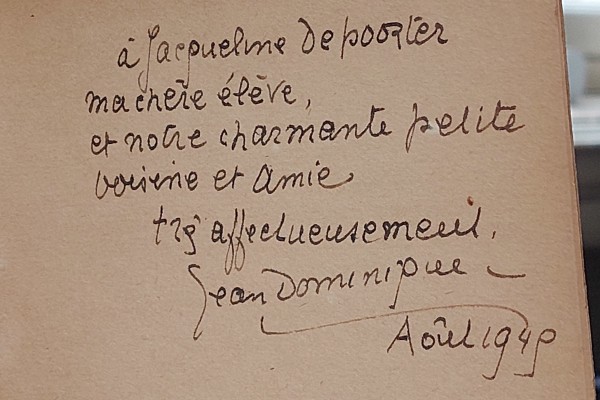 à Jacqueline Depoorter
ma chère élève,
et notre charmante petite
voisine et Amie
très affectueusement.
Jean Dominique
Août